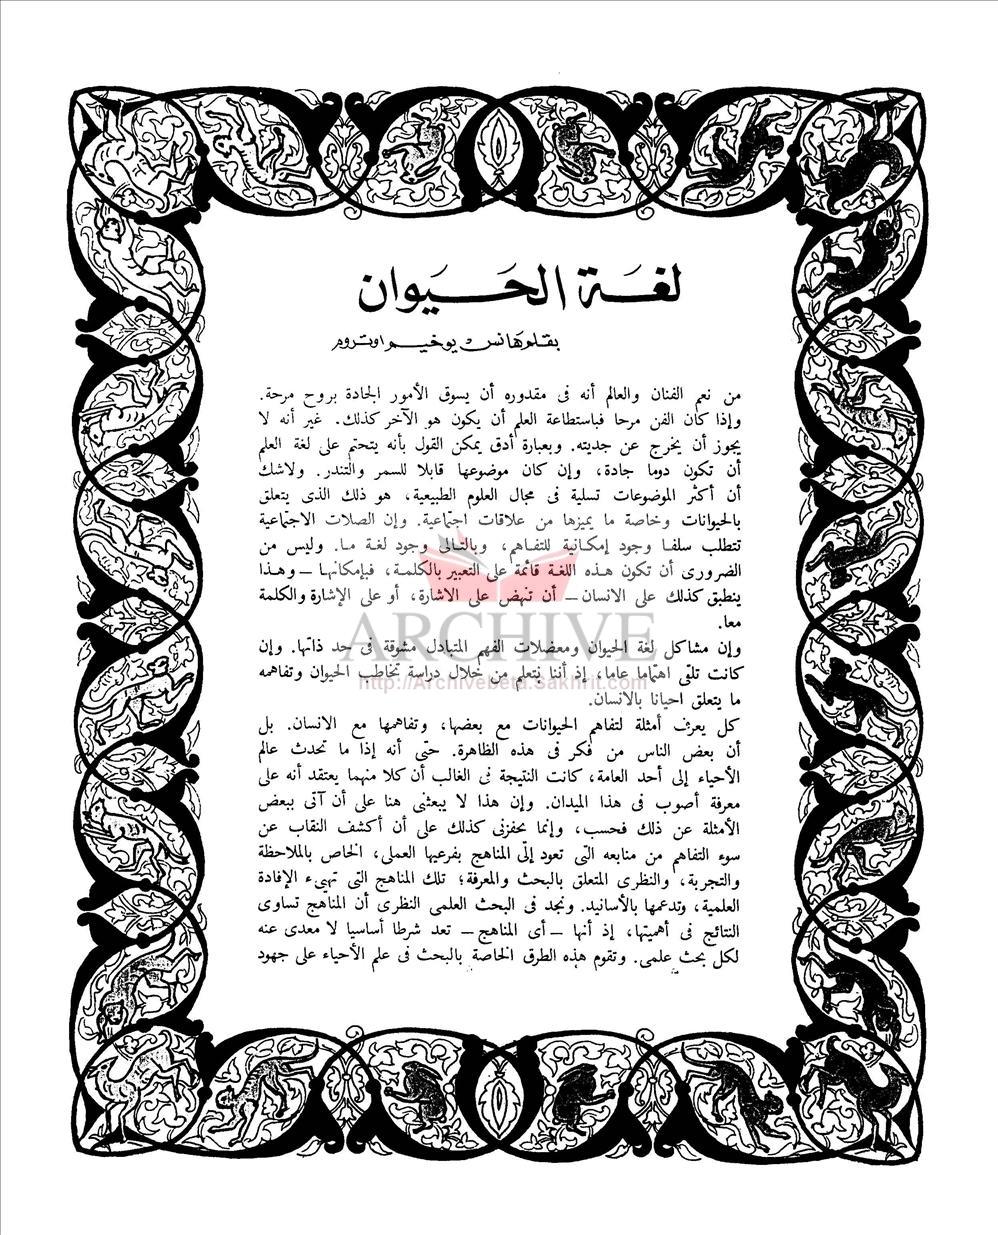 لغة الحيوان
بقلم هانس يوخيم اوتروم
من نعم الفنان والعالم أنه فى مقدوره أن يسوق الأمور الجادة بروح مرحة.
وإذا كان الفن مرحا فباستطاعة العلم أن يكون هو الآخر كذلك. غير أنه لا
يجوز أن يخرج عن جديته. وبعبارة أدق يمكن القول بأنه يتحتم على لغة العلم
أن تكون دوما جادة، وإن كان موضوعها قابلا للسمر والتندر. ولاشك
أن أكثر الموضوعات تسلية فى مجال العلوم الطبيعية، هو ذلك الذى يتعلق
بالحيوانات وخاصة ما يميزها من علاقات اجتماعية. وإن الصلات الاجتماعية
تتطلب سلفا وجود إمكانية للتفاهم، وبالتالى وجود لغة ما. وليس من
الضرورى أن تكون هذه اللغة قائمة على التعبير بالكلمة، فبإمكانها ــ وهذا
ينطبق كذلك على الانسان ــ أن تنهض على الاشارة، أو على الإشارة والكلمة
معا.
وإن مشاكل لغة الحيوان ومعضلات الفهم المتبادل مشوقة فى حد ذاتها. وإن
كانت تلقى اهتماما عاما، إذ أننا نتعلم من خلال دراسة تخاطب الحيوان وتفاهمه
ما يتعلق احيانا بالانسان.
كل يعرف أمثلة لتفاهم الحيوانات مع بعضها، وتفاهمها مع الانسان. بل
أن بعض الناس من فكر فى هذه الظاهرة. حتى أنه إذا ما تحدث عالم
الأحياء إلى أحد العامة، كانت النتيجة فى الغالب أن كلا منهما يعتقد أنه على
معرفة أصوب فى هذا الميدان. وإن هذا لا يبعثنى هنا على أن آتى ببعض
الأمثلة عن ذلك فحسب، وإنما يحفزنى كذلك على أن أكشف النقاب عن
سوء التفاهم من منابعه التى تعود إلى المناهج بفرعيها العملى، الخاص بالملاحظة
والتجربة، والنظرى المتعلق بالبحث والمعرفة؛ تلك المناهج التى تهيىء الإفادة
العلمية، وتدعمها بالأسانيد. ونجد فى البحث العلمى النظرى أن المناهج تساوى
النتائج فى أهميتها، إذ أنها ــ أى المناهج ــ تعد شرطا أساسيا لا معدى عنه
لكل بحث علمى. وتقوم هذه الطرق الخاصة بالبحث فى علم الأحياء على جهود
ARCHIVE
http://Archivebeta.Sakhrit.com